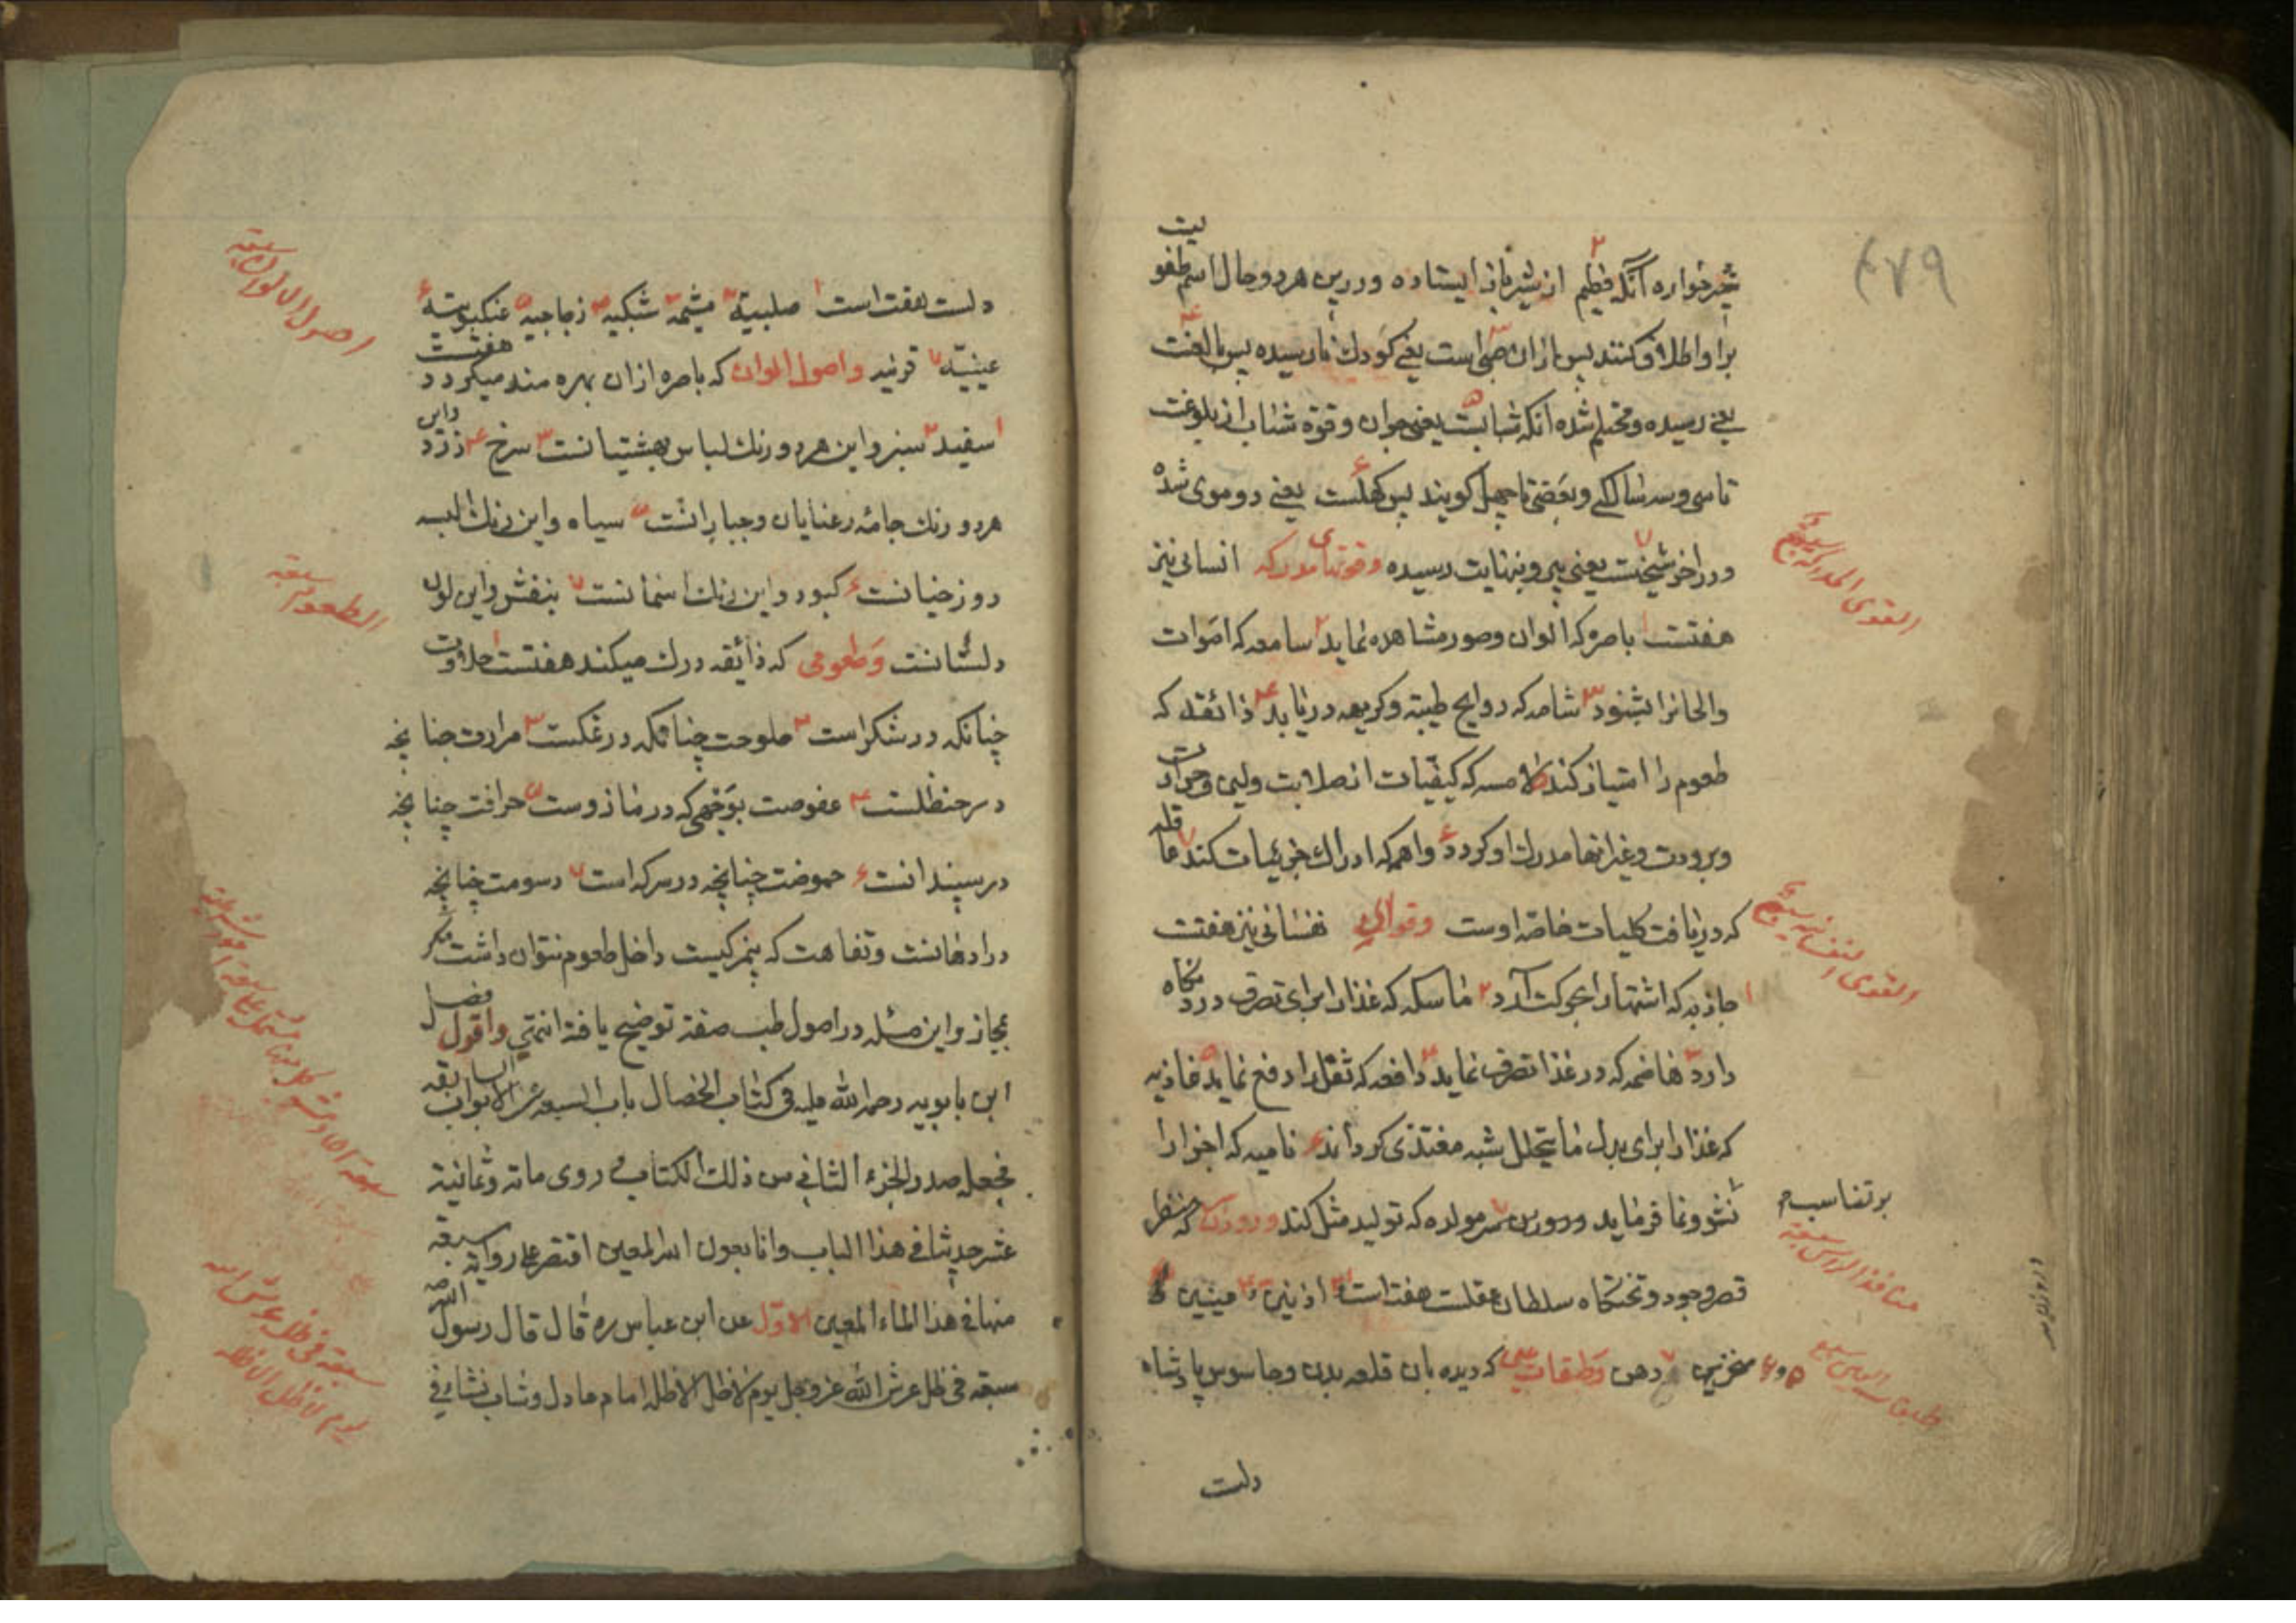 ۴۷۹
شیرخواره آنکه فطیم از شیر باز ایستاده و درین هر دو حال اسم طفولیت
برا و اطلاق کنند پس ازان صبی است یعنی کودک نارسیده پس بالغست
یعنی رسیده و محتلم شده آنکه شابست یعنی جوان و قوة شباب از بلوغت
تا سی و سه سالگی و بعضی تا چهل گویند پس کهلست یعنی دو موی شده
و در اخر شیخست یعنی پیر و بنهایت رسیده و قوتهای مدرکه انسانی نیز
هفتست ۱ باصره که الوان و صور مشاهده نماید ۲ سامعه که اصوات
والحانرا بشنود ۳ شامه که روایح طیبة و کریهه دریابد ۴ ذائقه که
طعوم را امتیاز کند ۵ لامسه که کیفیات از صلابت و لین و حرارت
و برودت و غیر انها مدرک او کردد ۶ واهمه که ادراک جزئیات کند ۷ عاقله
که دریافت کلیات خاصه اوست و قوای نفسانی نیز هفتست
۱ جاذبه که اشتها را بحرکت آرد ۲ ماسکه که غذا را برای تصرف در نگاه
دارد ۳ هاضمه که در غذا تصرف نماید ۴ دافعه که ثقل را دفع نماید ۵ غاذیه
که غذا را برای بدل ما یتحلل شبه مغتذی کرداند ۶ نامیه که اجزا را
نشو و نما فرماید ۷ مولده که تولید مثل کند و روزن که منظر
قصر وجود و تختکاه سلطان عقلست هفت است اذنین عینین
۵ و ۶ منخرین ۷ دهن و طبقات عین که دیده بان قلعه بدن و جاسوس پادشاه
دلست
القوی المدرکة سبع
القوی النفسانیه سبع
بر تناسب
منافذ الراس سبعة
طبقات العین سبع
دلست هفت است ۱ صلبیة ۲ مشیمه ۳ شبکیه ۴ زجاجیه ۵ عنکبوتیه ۶
عینیّه ۷ قرنیه و اصول الوان که باصره ازان بهره مند میکردد هفتست
۱ سفید ۲ سبز و این هر دو رنک لباس بهشتیانست ۳ سرخ ۴ زرد و این
هر دو رنک جامهٔ رعنایان و جبارانست ۵ سیاه و این رنک البسه
دوزخیانست ۶ کبود و این رنک اسمانست ۷ بنفش و این لون
دلستانست و طعومی که ذائقه درک میکند هفتست ۱ حلاوت
چنانکه در شکر است ۲ ملوحت چنانکه در نمکست ۳ مرارت چنانچه
در حنظلست ۴ عفوصت بوجهی که در مازوست ۵ حرافت چنانچه
در سپندانست ۶ حموضت چنانچه در سرکه است ۷ دسومت چنانچه
در ادهانست و تفاهت که پنیر کیست داخل طعوم نتوان داشت مکر
بمجاز و این مسئله در اصول طب صفة توضیح یافته انتهی و اقول فصل
ابن بابویه رحمة الله علیه فی کتاب الخصال باب السبعة الابواب السابقه
فجعل صدر الجزء الثانی من ذلك الکتاب و روی مائة و ثمانیة
عشر حدیثا فی هذا الباب و انا بعون الله المعین اقتصر علی روایة سبعة
منها فی هذا الماء المعین الاول عن ابن عباس ره قال قال رسول الله ص
سبعة فی ظل عرش الله عز و جل یوم لا ظل الا ظله امام عادل و شاب نشأ فی
اصول الالوان سبعة
الطعوم سبعة
سبعة فی ظل عرش الله
یوم لا ظل الا ظله